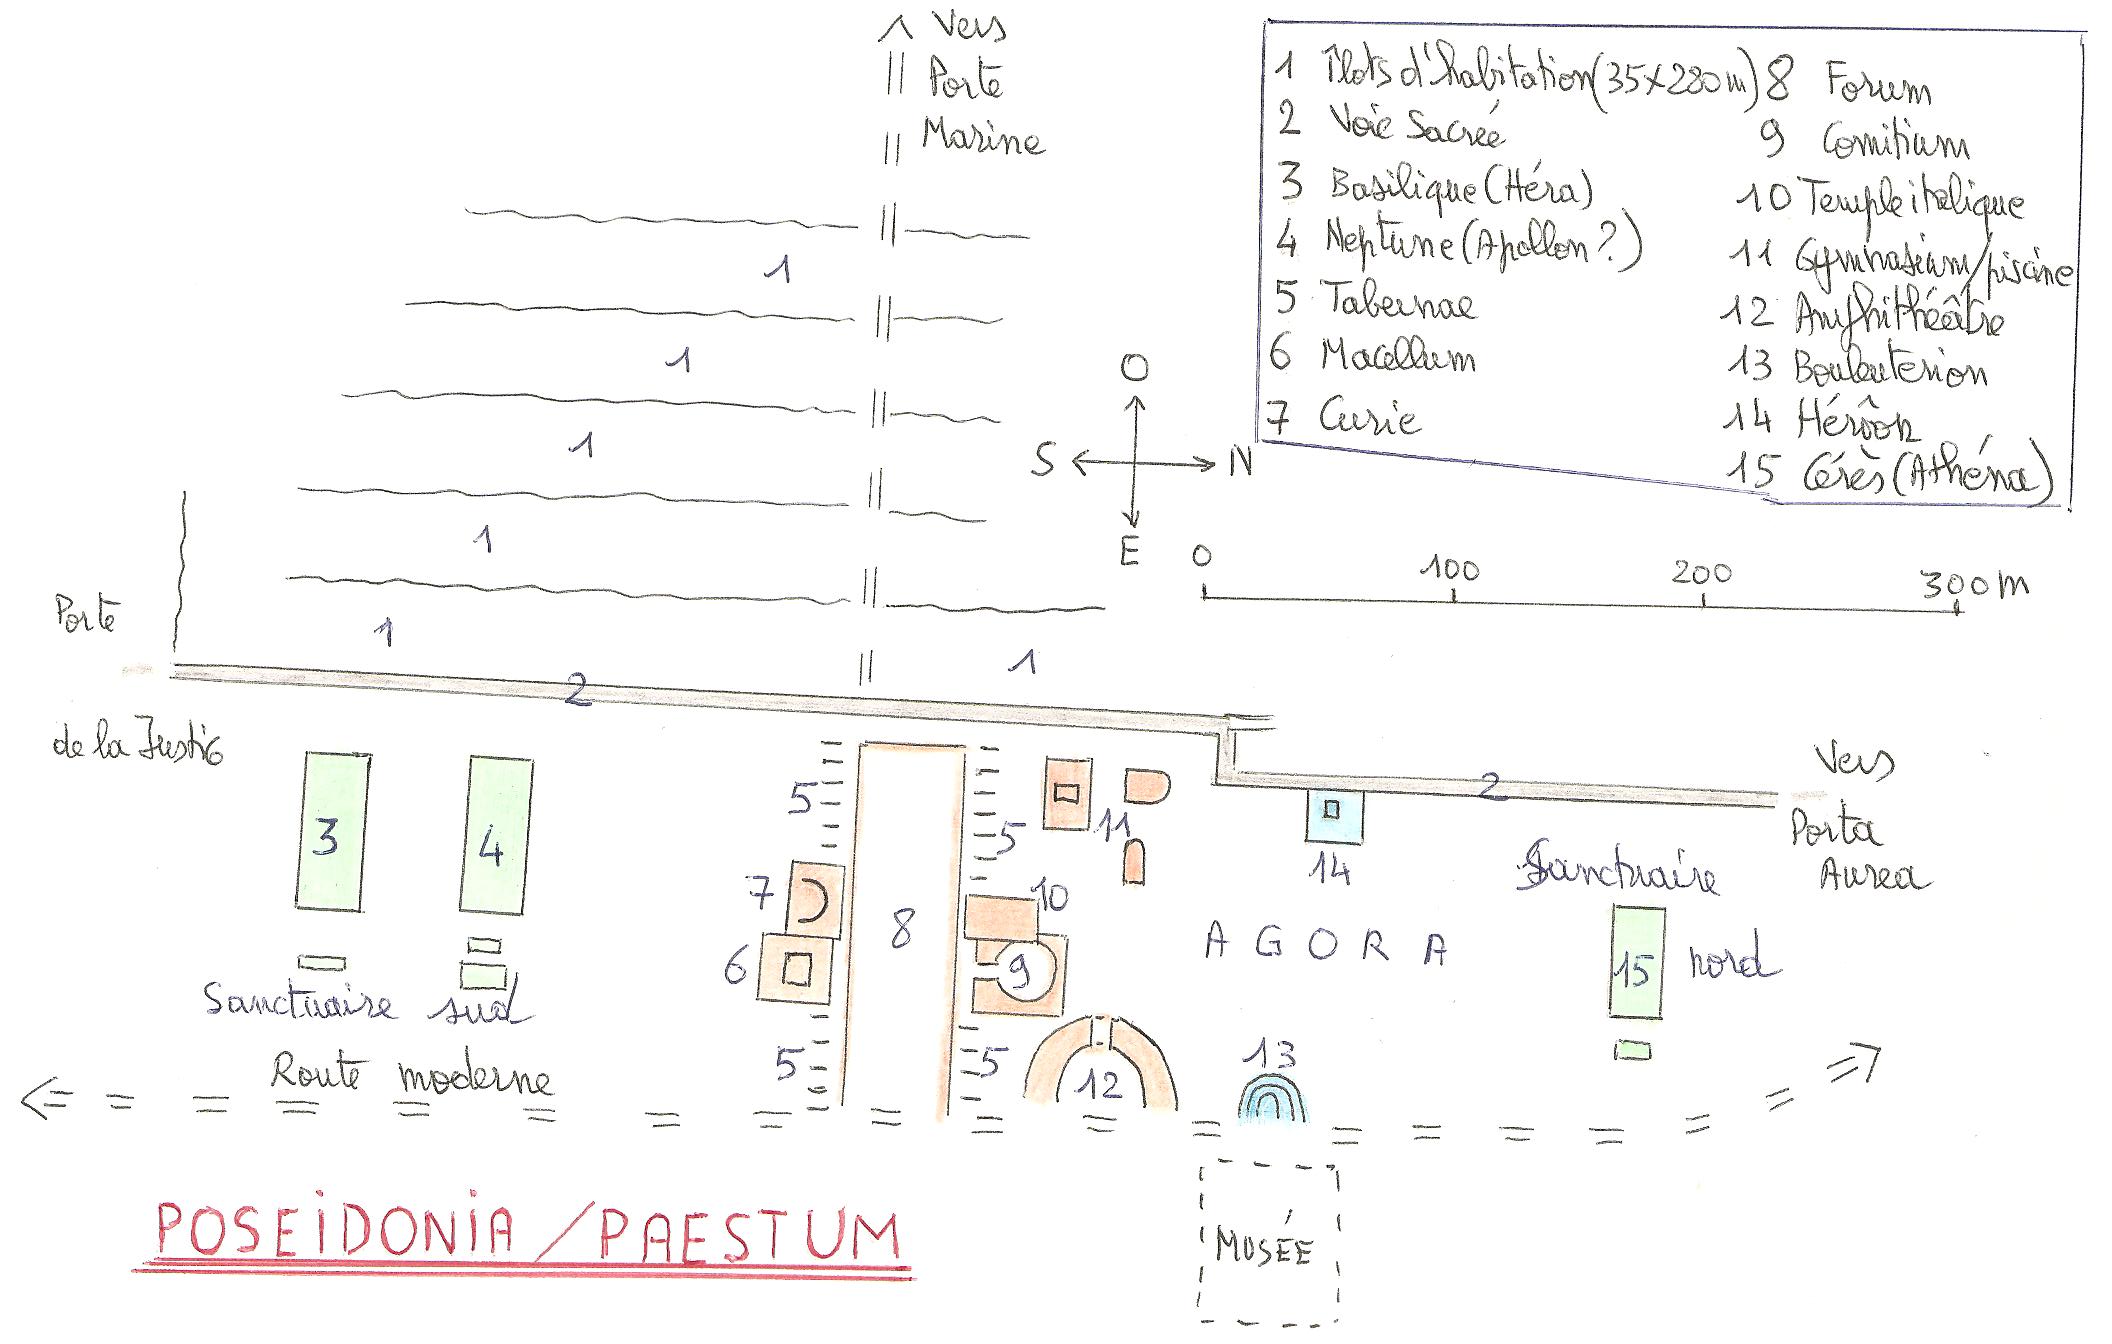 ^ Vers
Porte
Marine
1 Îlots d'habitation (35x280m)
2 Voie Sacrée
3 Basilique (Héra)
4 Neptune (Apollon?)
5 Tabernae
6 Macellum
7 Curie
8 Forum
9 Comitium
10 Temple italique
11 Gymnasium/piscine
12 Amphithéâtre
13 Bouleuterion
14 Hérôon
15 Cérès (Athéna)
1
1
1
1
1
1
O
S
N
E
0 100 200 300m
Porte
de la Justic
2
2
Vers
Porta
Aurea
3
4
5
5
7
6
8
10
9
11
14
Sanctuaire
nord
15
AGORA
Sanctuaire sud
Route moderne
5
5
12
13
MUSÉE
POSEIDONIA/PAESTUM